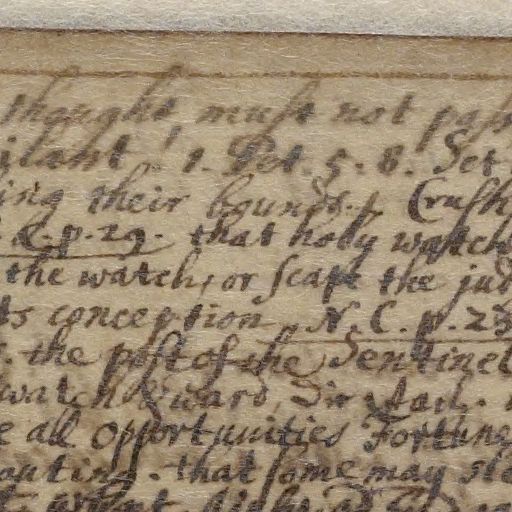 thought must not pass
ilant 1. Pet. 5. 8. Set
ing their bounds. Crush
p. 29. that holy watch
the watch, or scape the jud
ts conception N. C. p. 23
the post of the Sentinel
watch & ward,
e all opportunities Fortune
that some may ste